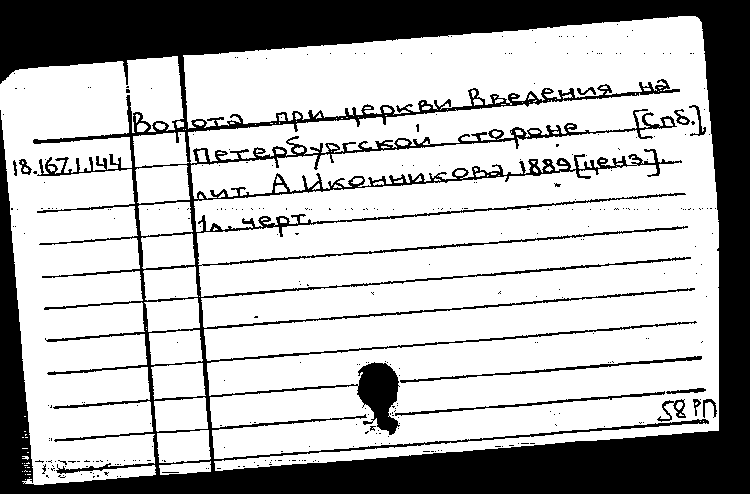 Ворота при церкви Введения на
18.167.1.144 Петербургской стороне. [Спб.],
лит. А. Иконникова, 1889 [ценз.].
1 л. черт.
58 РП